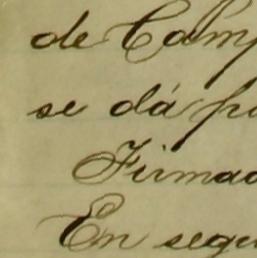 de Camp
se dá po
Firmad
En segu